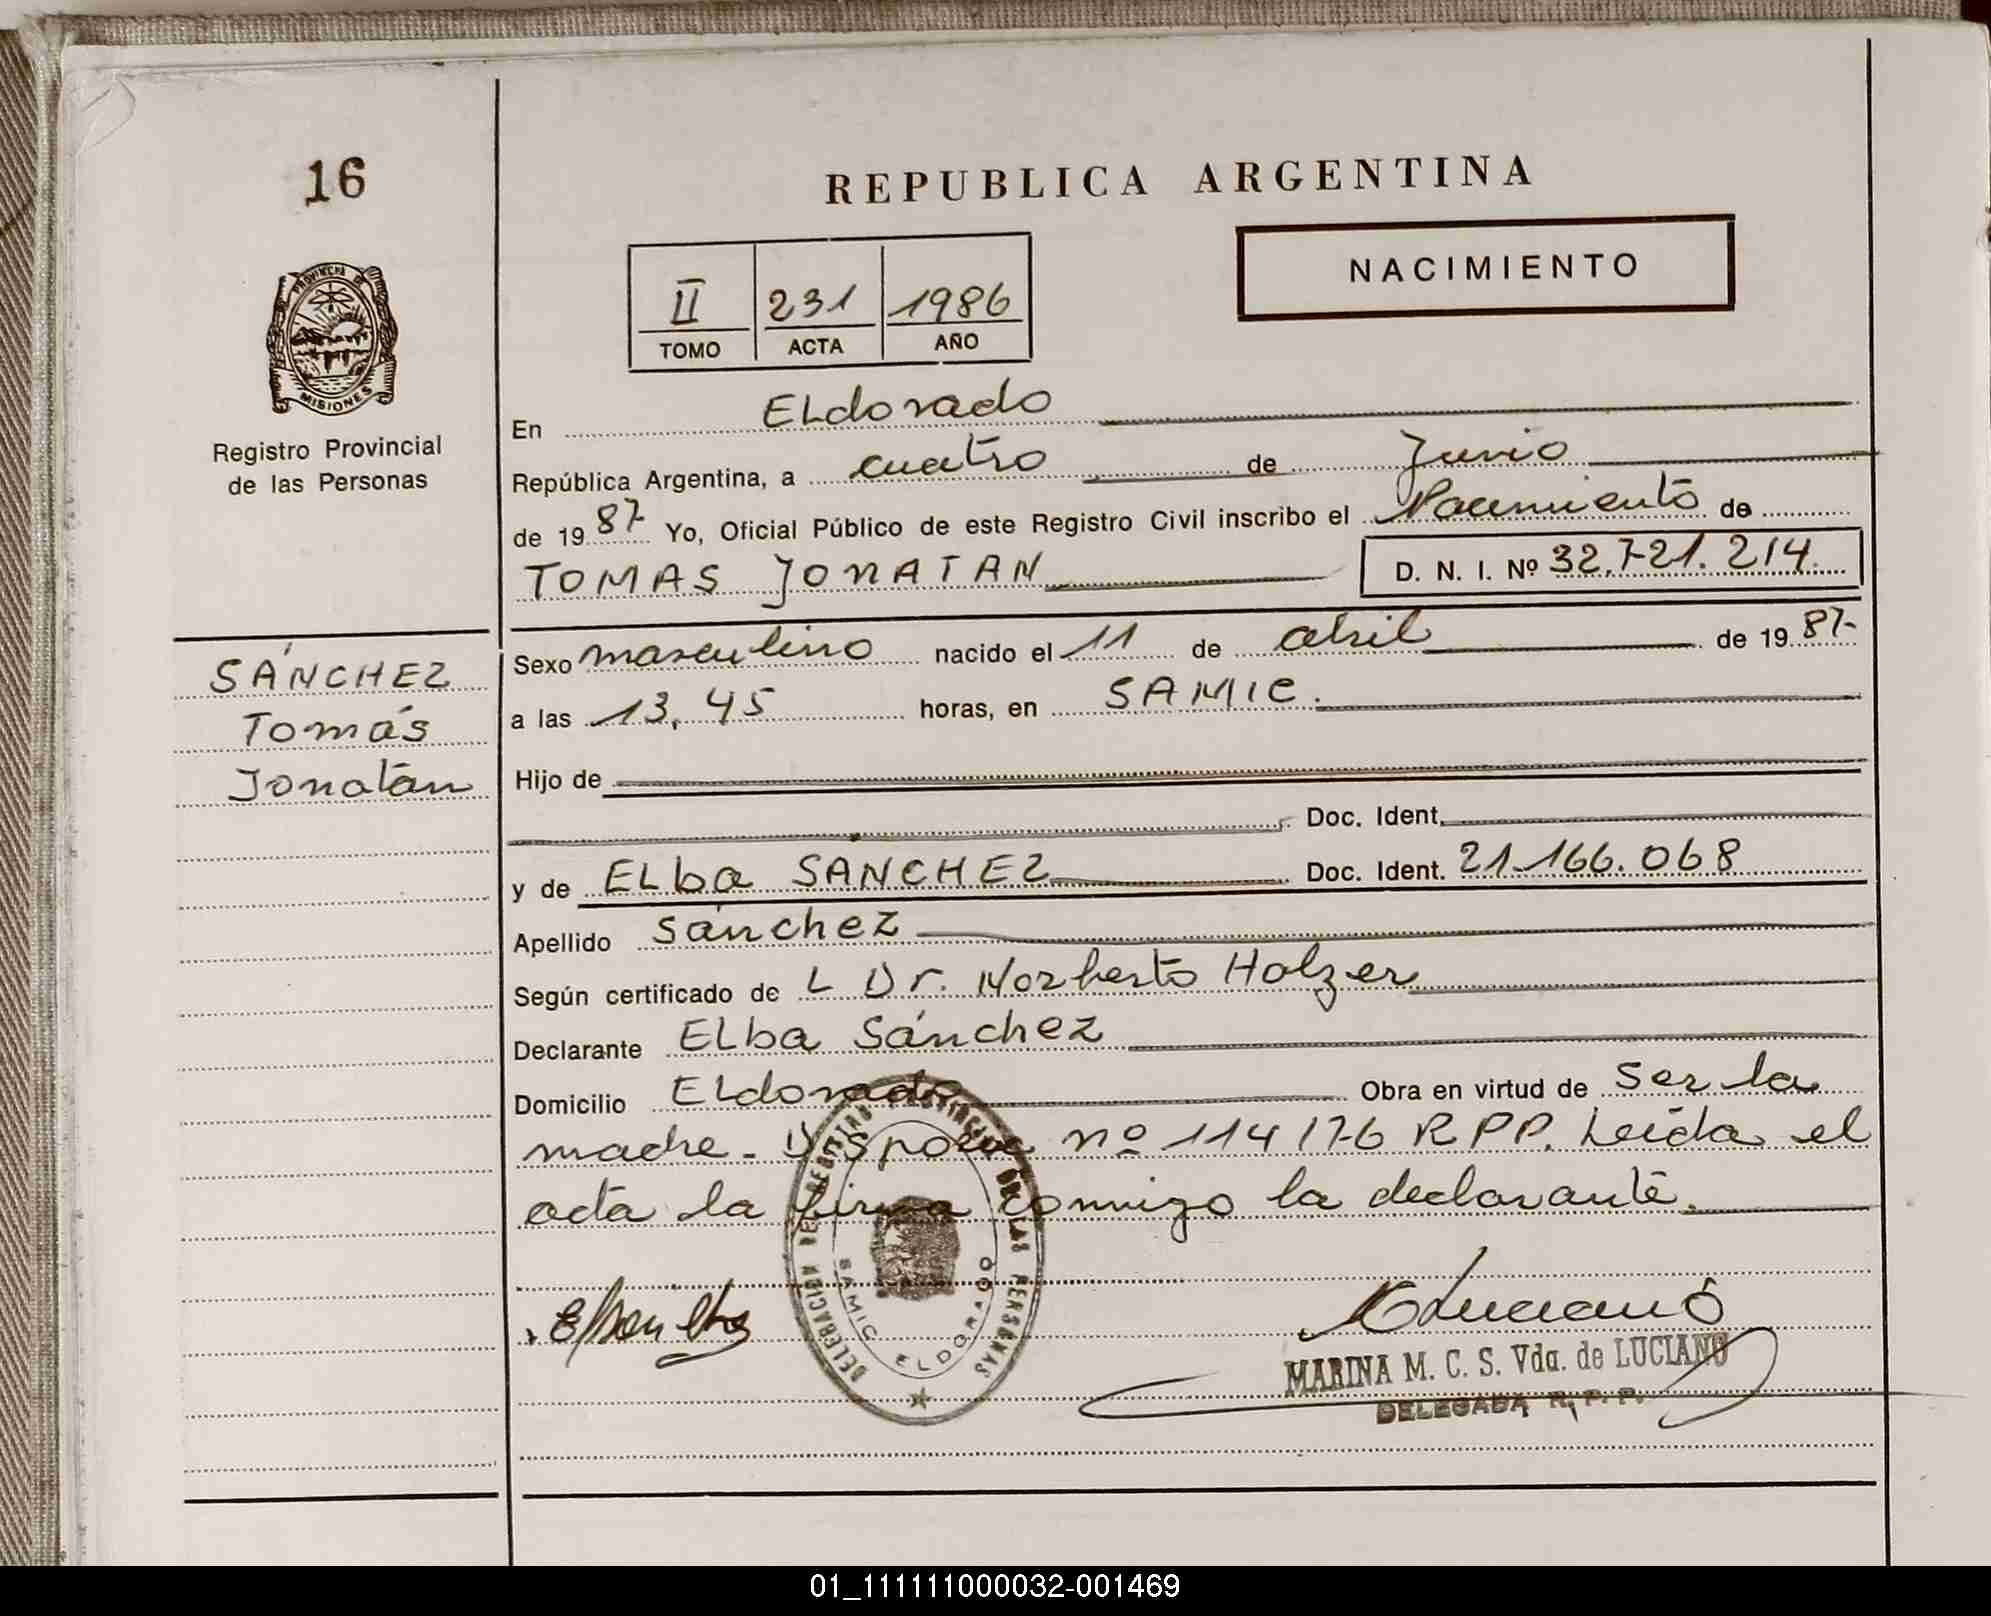 16
REPUBLICA ARGENTINA
NACIMIENTO
II 231 1986
TOMO ACTA AÑO
PROVINCIA DE
MISIONES
Registro Provincial
de las Personas
En ELdorado
República Argentina, a cuatro de Junio
de 1987 Yo, Oficial Público de este Registro Civil inscribo el Nacimiento de
TOMAS JONATAN D. N. I. Nº 32.721.214
SÁNCHEZ
Tomás
Jonatán
Sexo masculino nacido el 11 de abril de 1987-
a las 13,45 horas, en SAMIC.
Hijo de
Doc. Ident.
y de ELba SANCHEZ Doc. Ident. 21.166.068
Apellido Sánchez
Según certificado de L Dr. Norberto Holzer
Declarante ELba Sánchez
Domicilio ELdorado Obra en virtud de ser la
madre - Dispos. nº 114/76 R.P.P. Leída el
acta la firma conmigo la declarante.
DELEGACION DEL REGISTRO PROVINCIAL DE LAS PERSONAS
SAMIC ELDORADO
MARINA M. C. S. Vda. de LUCIANO
DELEGADA R. P. P.
01_111111000032-001469